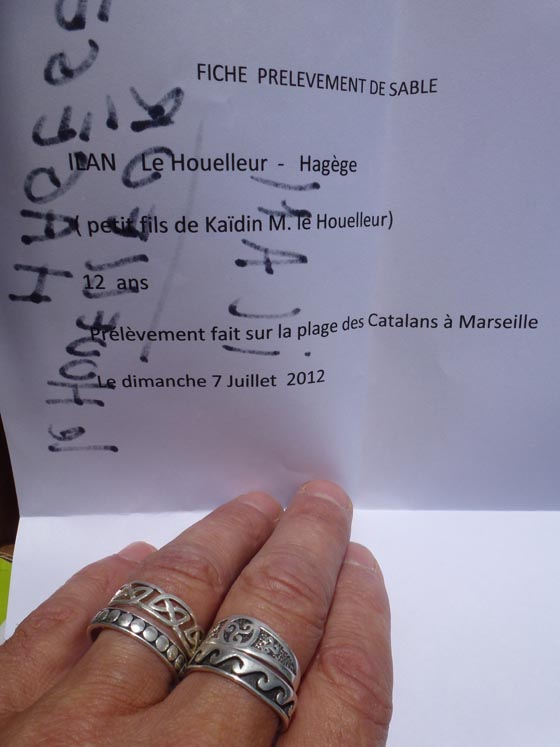 FICHE PRELEVEMENT DE SABLE
ILAN Le Houelleur - Hagège
( petit fils de Kaïdin M. le Houelleur)
12 ans
Prélèvement fait sur la plage des Catalans à Marseille
Le dimanche 7 Juillet 2012